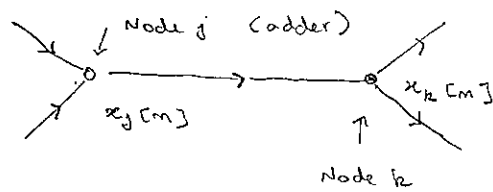 Node j (adder)
x_j [n]
x_k [n]
Node k